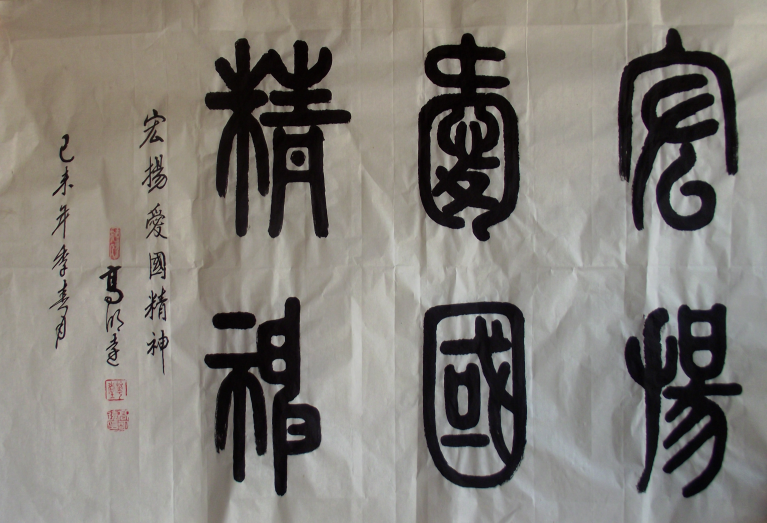 宏揚
愛國
精神
宏揚愛國精神
高明達
己未年季春月